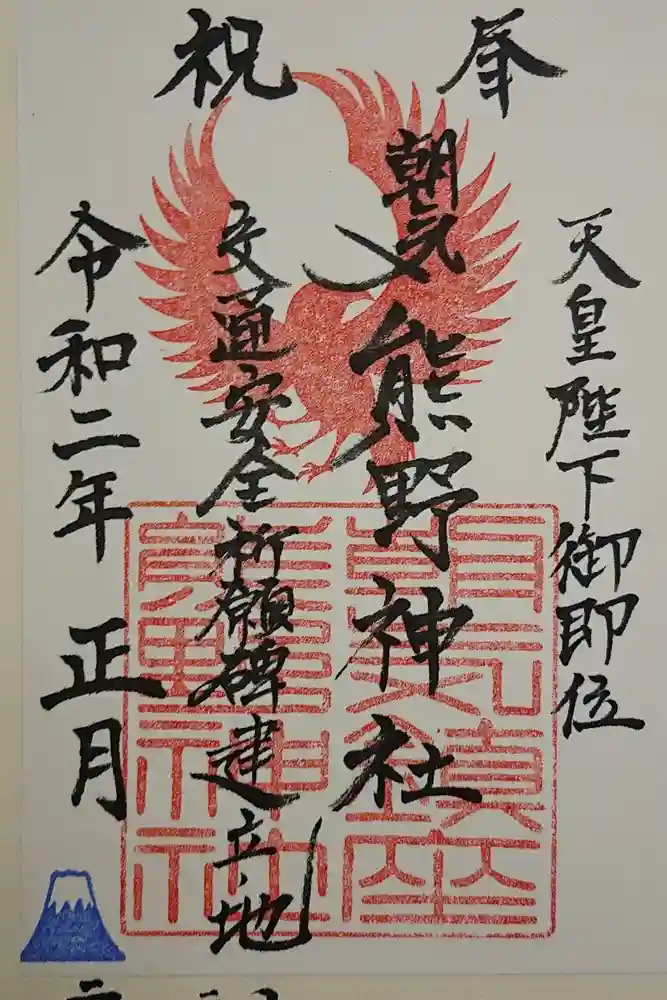 奉祝
天皇陛下御即位
朝気
熊野神社
交通安全祈願碑建立地
令和二年 正月